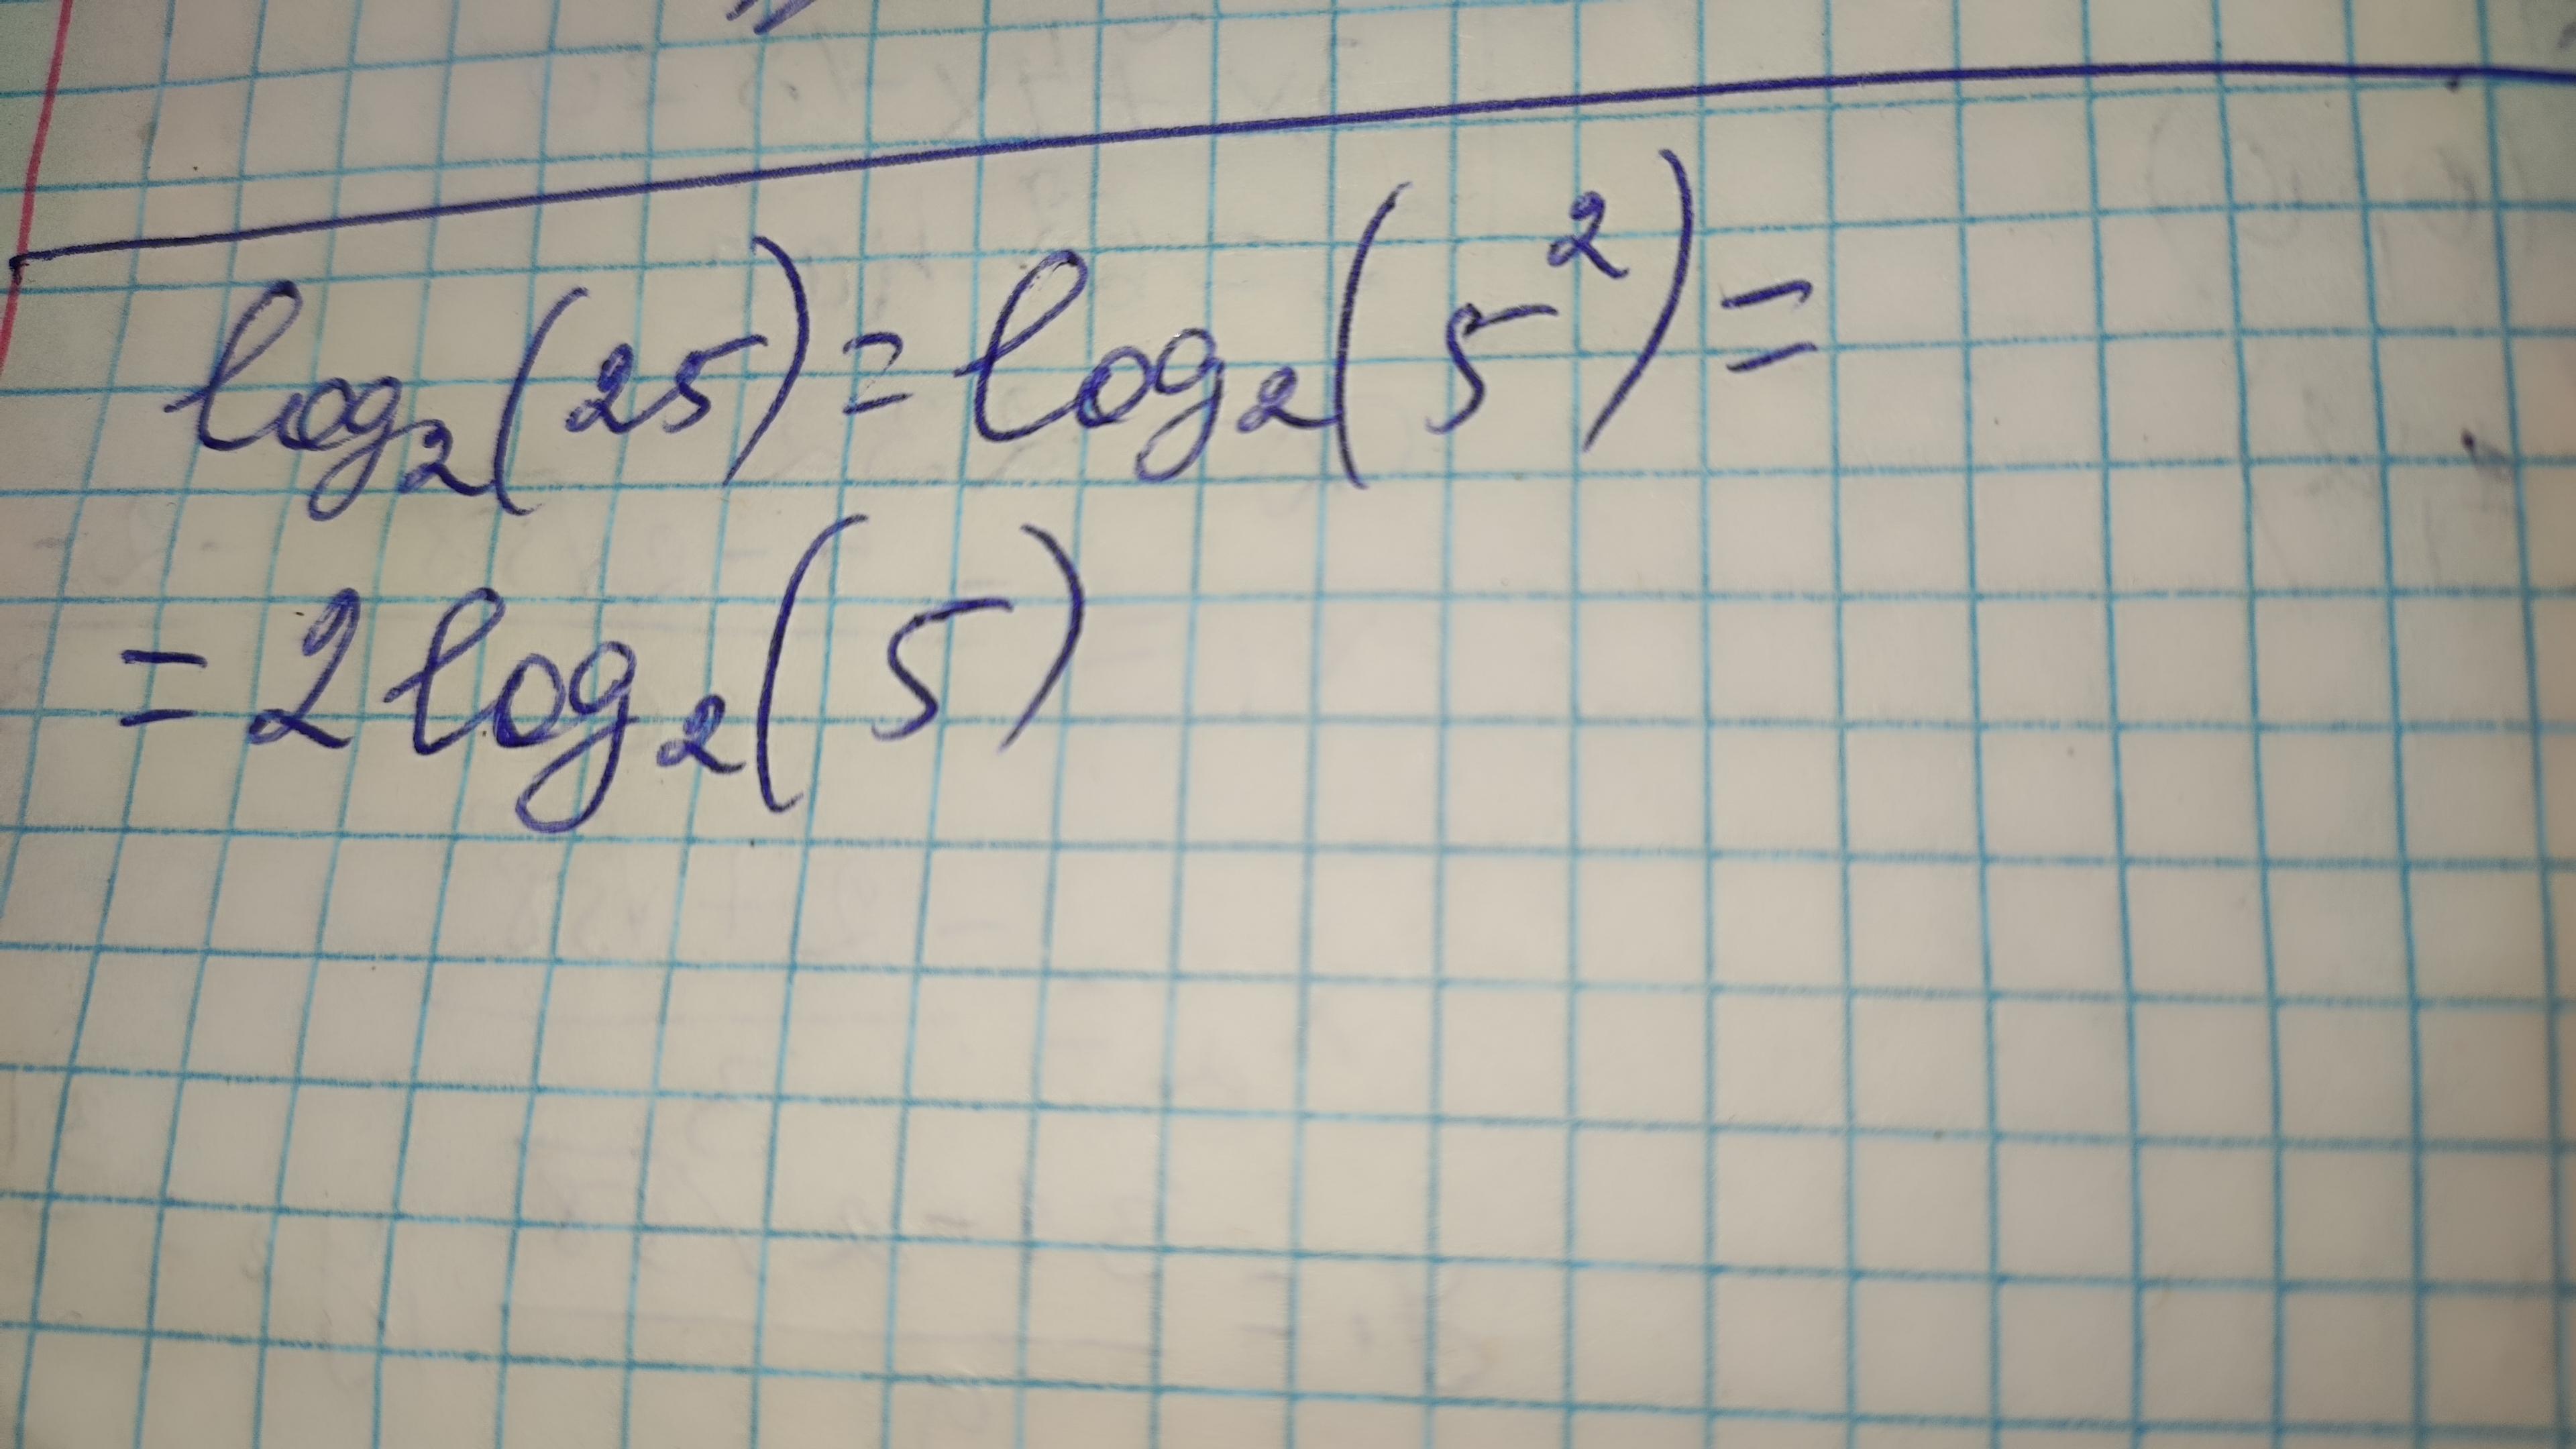 log₂(25) = log₂(5²) =
= 2 log₂(5)